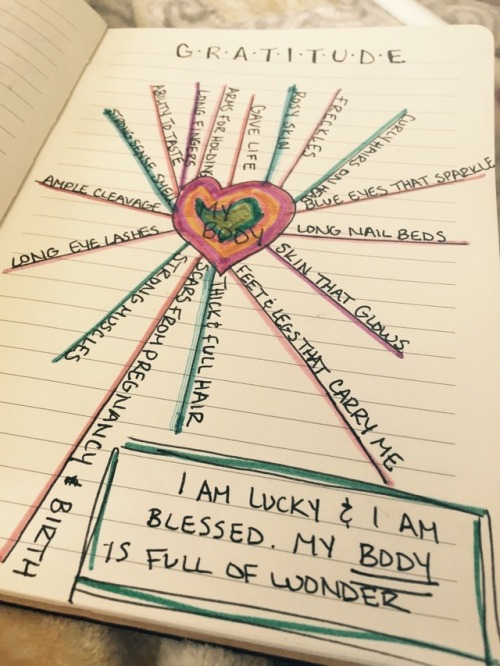 G·R·A·T·I·T·U·D·E
MY
BODY
STRONG SENSE
ABILITY TO TASTE
LONG FINGERS
ARMS FOR HOLDING
GAVE LIFE
ROSY SKIN
FRECKLES
CURLY HAIRS ON
BLUE EYES THAT SPARKLE
LONG NAIL BEDS
SKIN THAT GLOWS
FEET & LEGS THAT CARRY ME
THICK & FULL HAIR
SCARS FROM PREGNANCY & BIRTH
STRONG MUSCLES
LONG EYE LASHES
AMPLE CLEAVAGE
I AM LUCKY & I AM
BLESSED. MY BODY
IS FULL OF WONDER